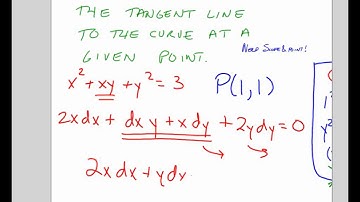 THE TANGENT LINE
TO THE CURVE AT A
GIVEN POINT.
NEED SLOPE & POINT!
x² + xy + y² = 3
P(1,1)
2xdx + dx y + x dy + 2ydy = 0
2xdx + ydx